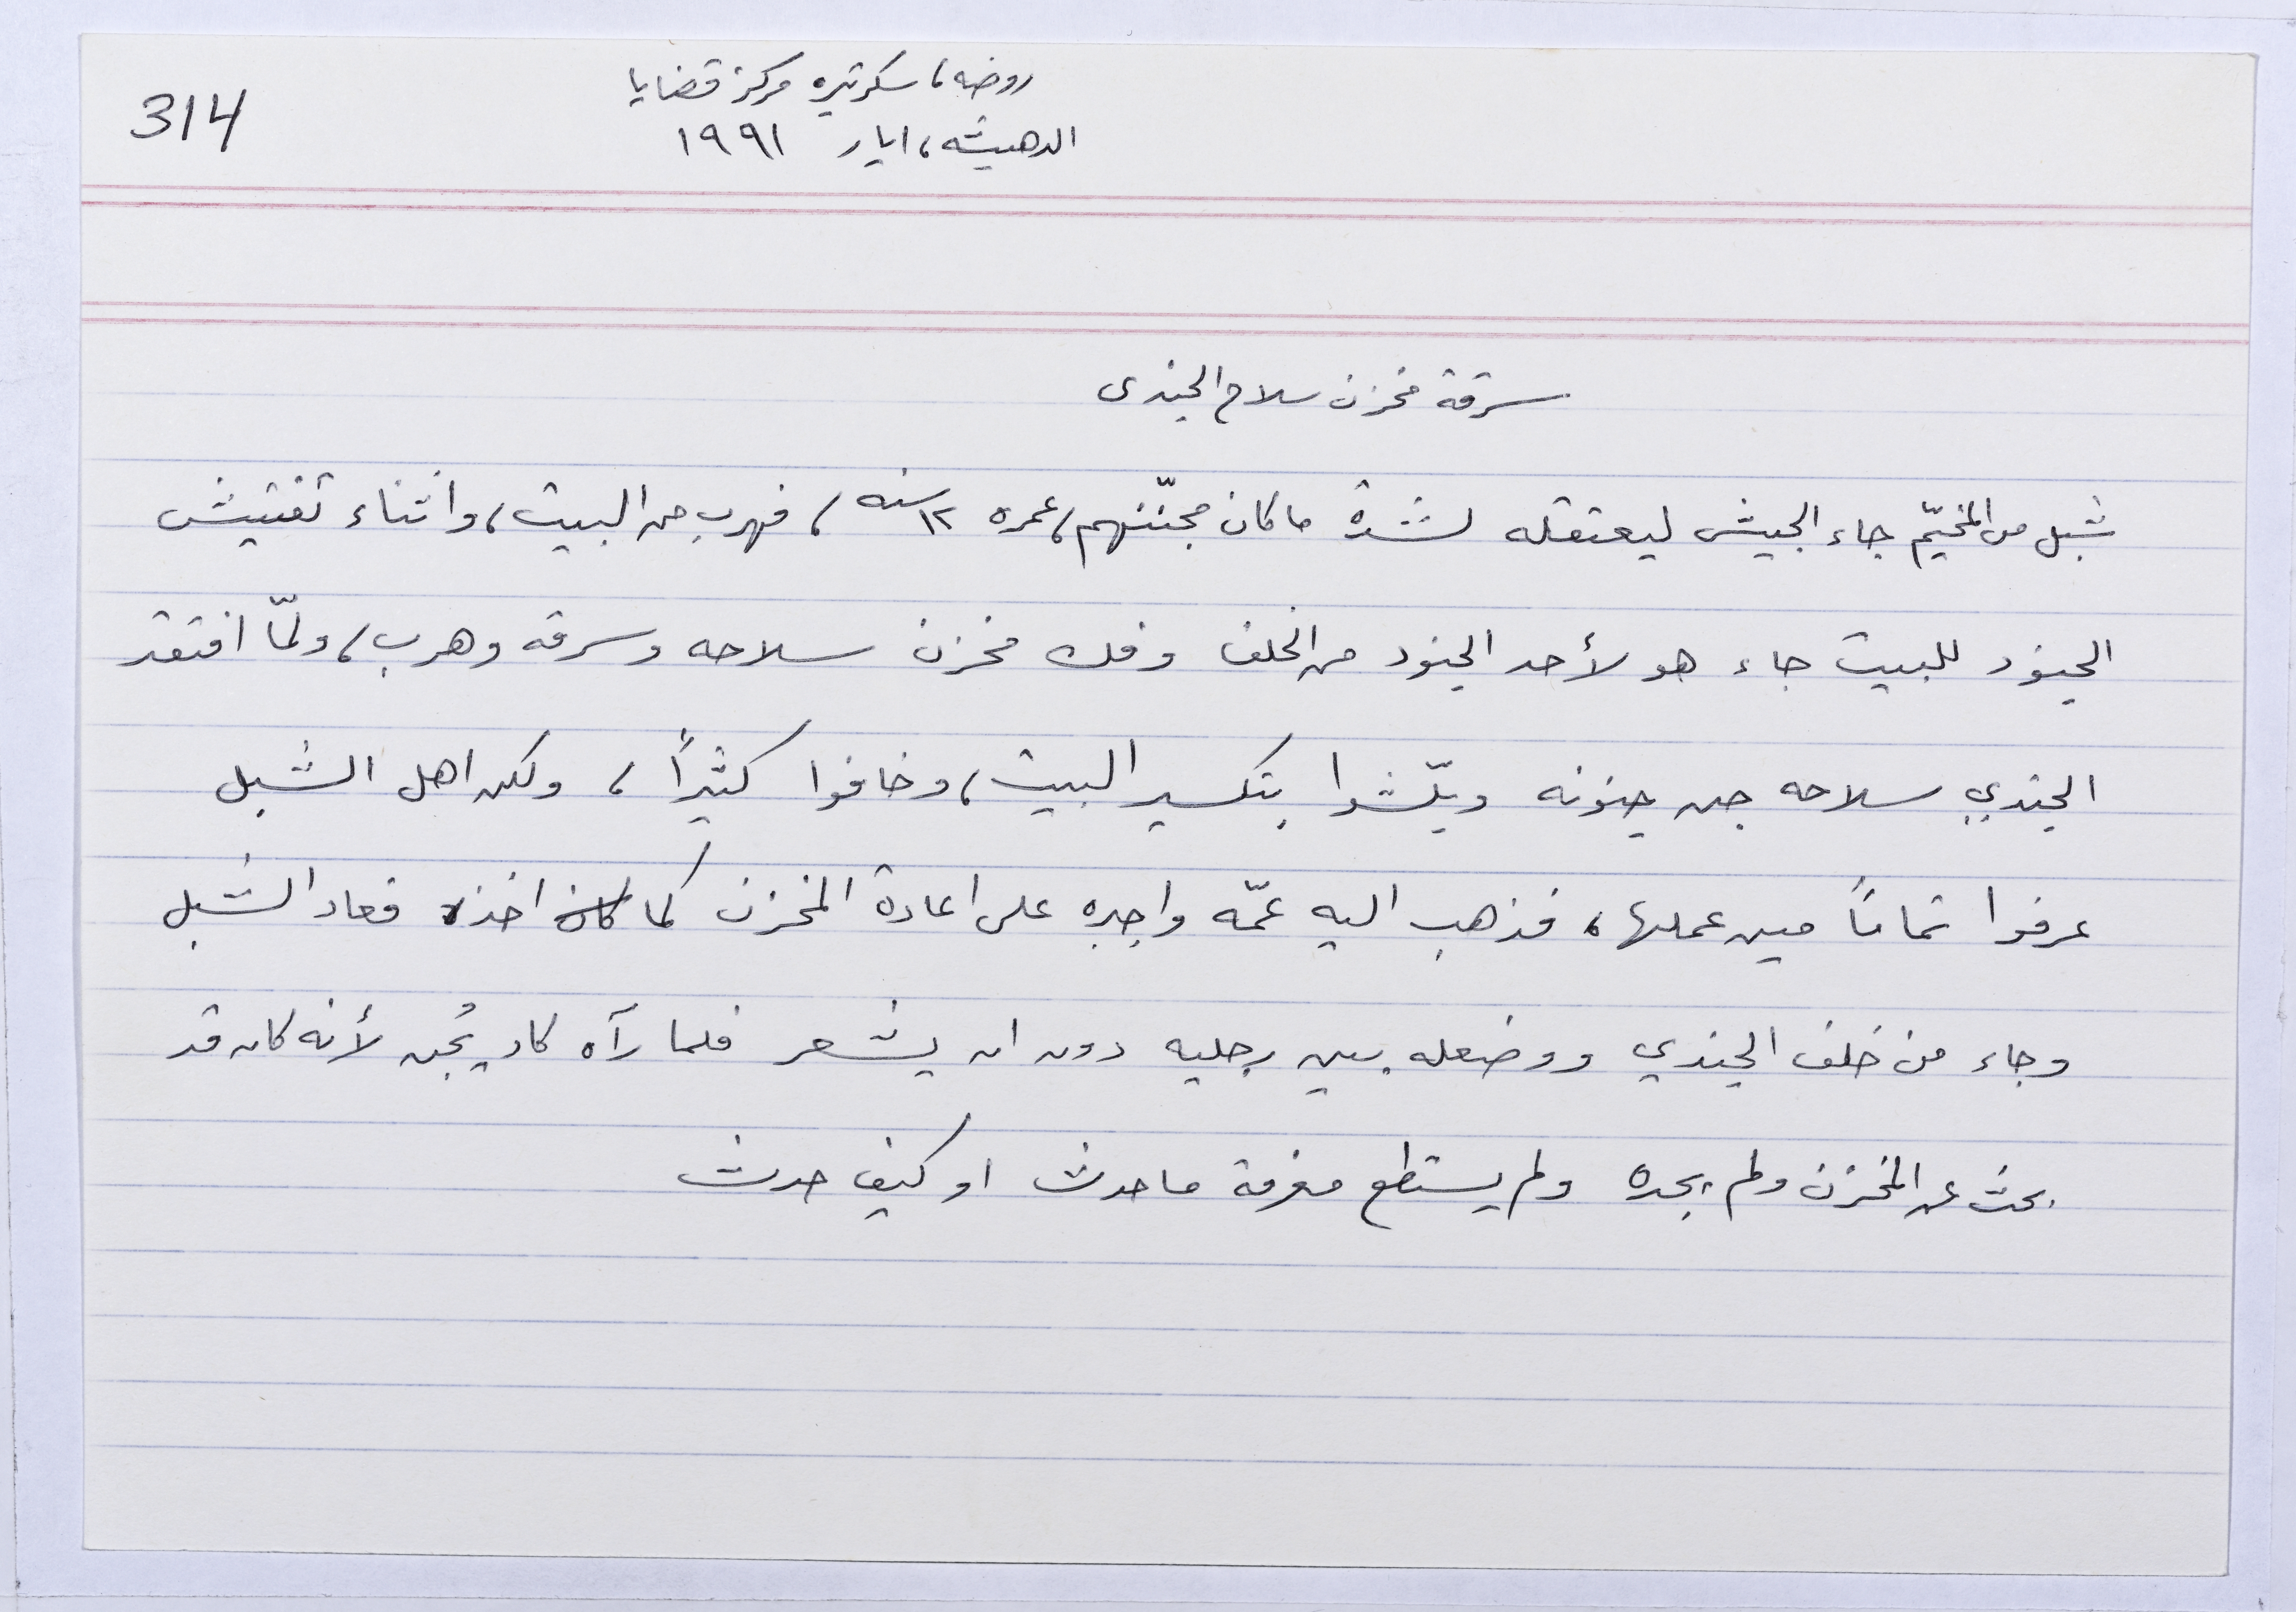 314
روضه، سكرتيره مركز قضايا
الدهيشه، ايار ١٩٩١
سرقة مخزن سلاح الجندى
شبل من المخيّم جاء الجيش ليعتقله لشدة ما كان مجنّنهم، عمره ١٢ سنه، فهرب من البيت، واثناء تفتيش
الجنود للبيت جاء هو لأحد الجنود من الخلف وفك مخزن سلاحه وسرقه وهرب، ولمّا افتقد
الجندي سلاحه جن جنونه وبلّشوا بتكسير البيت، وخافوا كثيراً، ولكن اهل الشبل
عرفوا تماماً مين عملها، فذهب اليه عمّه واجبره على اعادة المخزن كما كان اخذه فعاد الشبل
وجاء من خلف الجندي ووضعله بين رجليه دون ان يشعر فلما رآه كاد يُجن لأنه كان قد
بحث عن المخزن ولم يجده ولم يستطع معرفة ما حدث او كيف حدث